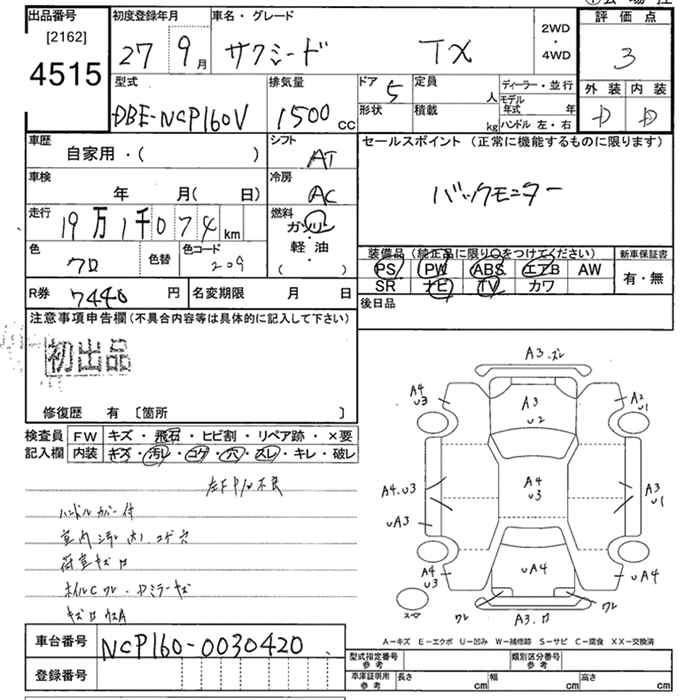 出品番号
[2162]
4515
初度登録年月
27 9月
車名・グレード
サクシード TX
2WD
・
4WD
評価点
3
型式
DBE-NCP160V
排気量
1500 cc
ドア 5
形状
定員 人
積載 kg
ディーラー・並行
モデル年式 年
ハンドル 左・右
外装 内装
D D
車歴
自家用・( )
シフト
AT
セールスポイント (正常に機能するものに限ります)
バックモニター
車検
年 月( 日)
冷房
AC
走行
19万1千074km
燃料
ガソリン
軽・油
( )
色
クロ
色替
色コード
209
装備品(純正品に限り○をつけてください)
PS PW ABS エアB AW
SR ナビ TV カワ
新車保証書
有・無
R券 7440 円
名変期限 月 日
後日品
注意事項申告欄(不具合内容等は具体的に記入して下さい)
初出品
修復歴 有 〔箇所 〕
検査員
記入欄
FW キズ・飛石・ヒビ割・リペア跡・×要
内装 キズ・汚レ・コゲ・穴・スレ・キレ・破レ
左FP/W不良
ハンドルカバー付
荷室キズ
A3.ズレ
A4
U3
A3
U2
A2
U1
A4.U3
A4
U3
A3
U1
UA3
A4
U3
UA4
UA4
ワレ
ワレ
A3
スペア
A-キズ E-エクボ U-凹み W-補修跡 S-サビ C-腐食 XX-交換済
車台番号 NCP160-0030420
登録番号
型式指定番号
参考
類別区分番号
参考
車庫証明用
参考
長さ cm
幅 cm
高さ cm